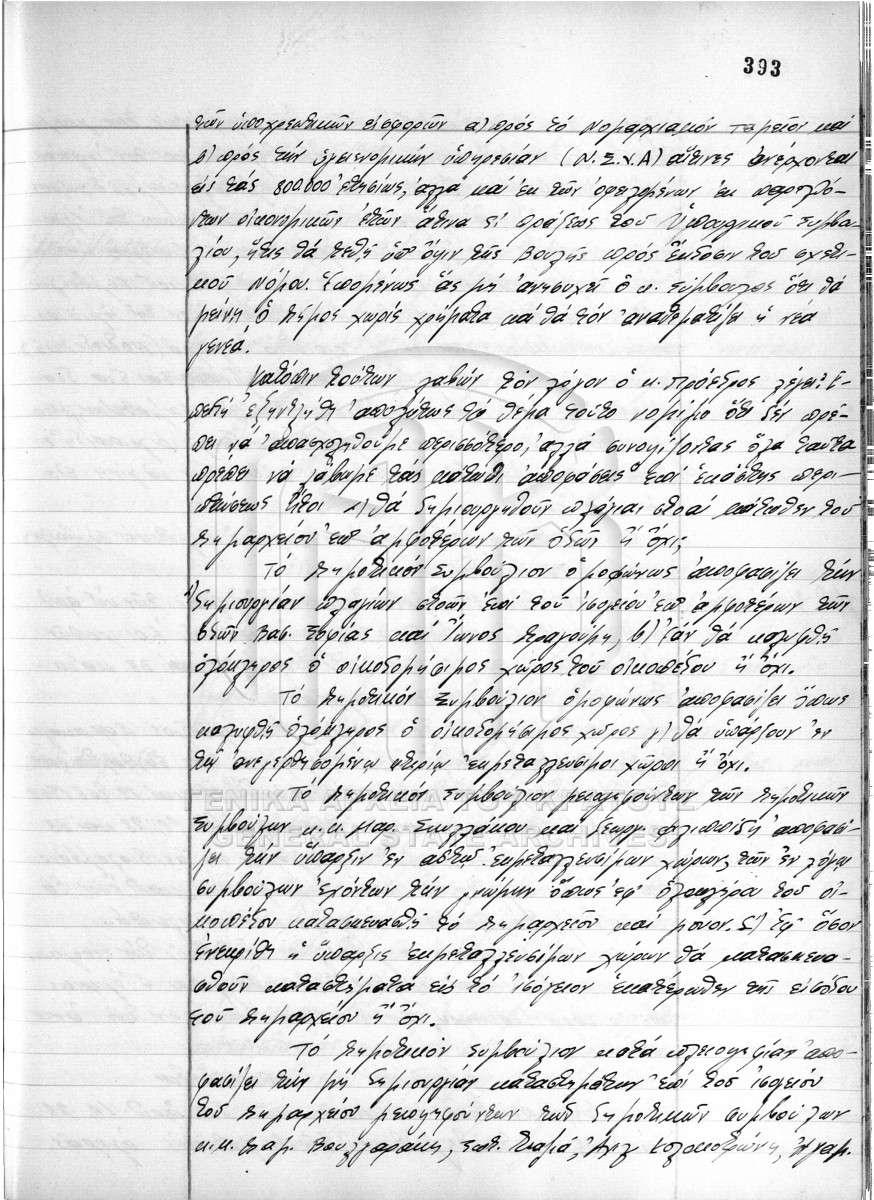 393
τῶν ὑποχρεωτικῶν εἰσφορῶν α) πρὸς τὸ Νομαρχιακόν ταμεῖον καί
β) πρὸς τήν ὑγειονομικήν ὑπηρεσίαν (Ν.Σ.Υ.Α) αἵτινες ἀνέρχονται
εἰς τάς 800.000 ἐτησίως, ἀλλά καί ἐκ τῶν ὀφειλομένων ἐκ παρελθό-
ντων οἰκονομικῶν ἐτῶν ἅτινα δι' πράξεως τοῦ Ὑπουργικοῦ Συμβου-
λίου, ἥτις θά τεθῇ ὑπ' ὄψιν τῆς Βουλῆς πρός ἔκδοσιν τοῦ σχετι-
κοῦ Νόμου. Ἑπομένως ἄς μή ἀνησυχῇ ὁ κ. Σύμβουλος ὅτι θά
μείνῃ ὁ Δῆμος χωρίς χρήματα καί θά τόν ἀναθεματίζει ἡ νέα
γενεά.
Κατόπιν τούτων λαβών τόν λόγον ὁ κ. Πρόεδρος λέγει: Ἐ-
πειδή ἐξηντλήθη ἀπολύτως τό θέμα τοῦτο νομίζω ὅτι δέν πρέ-
πει νά ἀπασχοληθοῦμε περισσότερο, ἀλλά συνοψίζοντας ὅλα ταῦτα
πρέπει νά λάβωμε τάς κάτωθι ἀποφάσεις ἐπί ἑκάστης περι-
πτώσεως ἤτοι α) θά δημιουργηθοῦν πλάγιαι στοαί κάτωθεν τοῦ
Δημαρχείου ἐπ' ἀμφοτέρων τῶν ὁδῶν ἤ ὄχι;
Τό Δημοτικόν Συμβούλιον ὁμοφώνως ἀποφασίζει τήν
δημιουργίαν πλαγίων στοῶν ἐπί τοῦ ἰσογείου ἐπ' ἀμφοτέρων τῶν
ὁδῶν Βασ. Σοφίας καί Ἴωνος Δραγούμη, β) Ἐάν θά καλυφθῇ
ὁλόκληρος ὁ οἰκοδομήσιμος χῶρος τοῦ οἰκοπέδου ἤ ὄχι.
Τό Δημοτικόν Συμβούλιον ὁμοφώνως ἀποφασίζει ὅπως
καλυφθῇ ὁλόκληρος ὁ οἰκοδομήσιμος χῶρος γ) θά ὑπάρξουν ἐν
τῷ ἀνεγερθησομένῳ κτιρίῳ ἐκμεταλλεύσιμοι χῶροι ἤ ὄχι.
Τό Δημοτικόν Συμβούλιον μειοψηφούντων τῶν Δημοτικῶν
Συμβούλων κ.κ. Μαρ. Σκυλλάκου καί Γεωργ. Φιλιππίδη ἀποφασί-
ζει τήν ὕπαρξιν ἐν αὐτῷ ἐκμεταλλευσίμων χώρων, τῶν ἐν λόγῳ
συμβούλων ἐχόντων τήν γνώμην ὅπως ἐφ' ὁλοκλήρου τοῦ οἰ-
κοπέδου κατασκευασθῇ τό Δημαρχεῖον καί μόνον. δ) Ἐφ' ὅσον
ἐνεκρίθη ἡ ὕπαρξις ἐκμεταλλευσίμων χώρων θά κατασκευα-
σθοῦν καταστήματα εἰς τό ἰσόγειον ἑκατέρωθεν τῆς εἰσόδου
τοῦ Δημαρχείου ἤ ὄχι.
Τό Δημοτικόν Συμβούλιον κατά πλειοψηφίαν ἀπο-
φασίζει τήν μή δημιουργίαν καταστημάτων ἐπί τοῦ ἰσογείου
τοῦ Δημαρχείου μειοψηφούντων τῶν δημοτικῶν συμβούλων
κ.κ. Δαμ. Βουλγαράκη, Σωτ. Κολοκοτρώνη,
ΓΕΝΙΚΑ ΑΡΧΕΙΑ ΤΟΥ ΚΡΑΤΟΥΣ
GENERAL STATE ARCHIVES